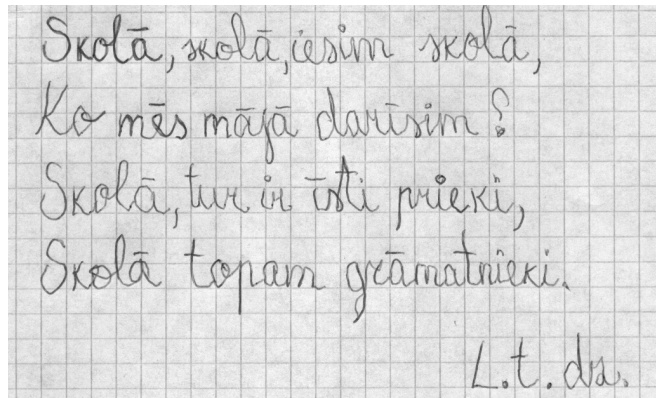 Skolā, skolā, iesim skolā,
Ko mēs mājā darīsim?
Skolā, tur ir īsti prieki,
Skolā topam grāmatnieki.
L.t.dz.